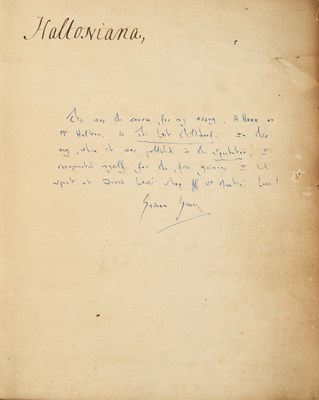 Haltoniana,
This was the source for my essay, A Hoax on
Mr Hulton. in The Lost Childhood. In this
way, when it was published in the Spectator, I
recompensed myself for the five guineas I had
spent at David Low's shop off St Martin's Lane!
Graham Greene